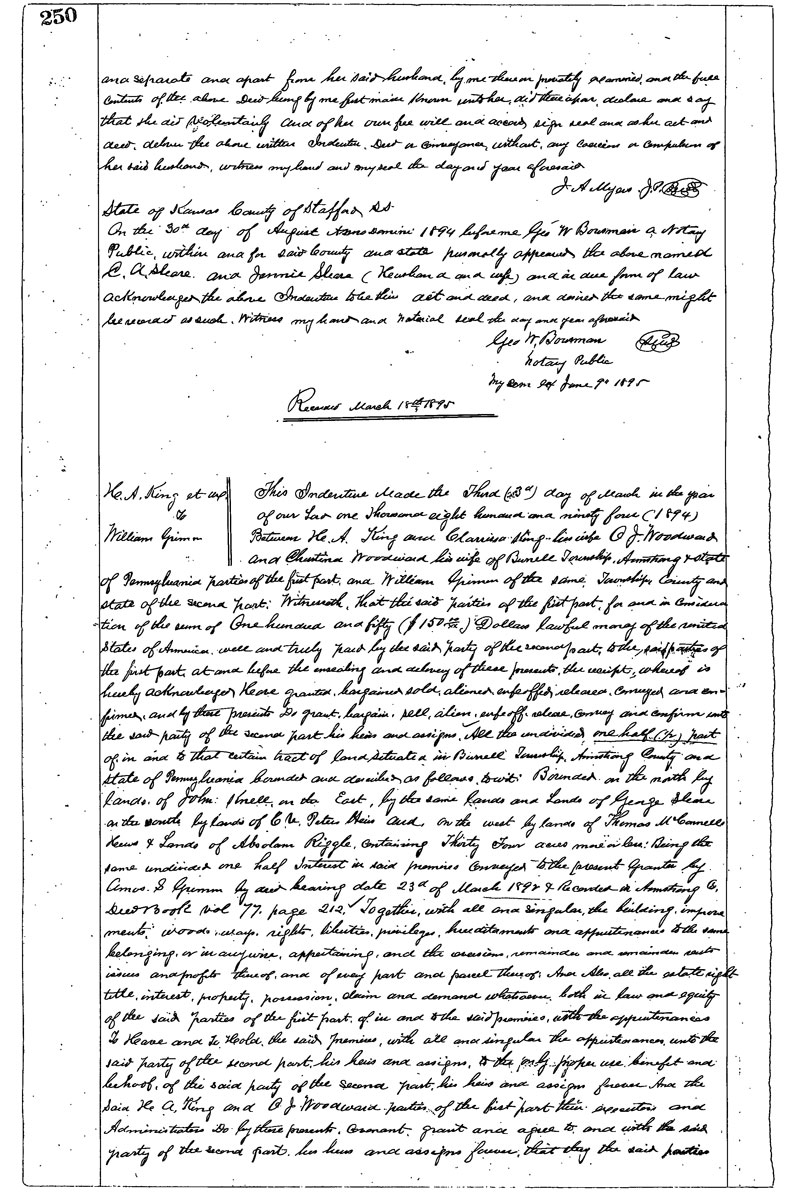 250
and separate and apart from her said husband, by me thereon privately examined, and the full
contents of the above Deed being by me first made known unto her, did thereupon, declare and say
that she did voluntarily and of her own free will and accord, sign seal and as her act and
deed, deliver the above written Indenture, Deed or conveyance, without, any coercion or compulsion of
her said husband, witness my hand and my seal the day and year aforesaid
J. A Myers J.P. Seal
State of Kansas County of Stafford, SS.
On the 30th day of August Anno domini 1894 before me Geo W Bowman a Notary
Public, within and for said County and state personally appeared the above named
C. A, Sheare and Jennie Sheare (Husband and wife) and in due form of law
acknowledged the above Indenture to be their act and deed, and desired the same might
be recorded as such. Witness my hand and Notarial seal the day and year aforesaid
Geo W, Bowman Seal
Notary Public
My com ex June 9th 1895
Recorded March 18th 1895
H. A. King et ux
to
William Grimm
This Indenture Made the Third (3rd) day of March in the year
of our Lord one Thousand eight hundred and ninety four (1894)
Between H. A. King and Clarrisa King his wife C J. Woodward
and Christina Woodward his wife of Burrell Township, Armstrong & state
of Pennsylvania parties of the first part, and William Grimm of the same, Township, County and
state of the second part: Witnesseth, That the said parties of the first part, for and in considera
tion of the sum of One hundred and fifty ($150) Dollars lawful money of the united
States of America, well and truly paid by the said party of the second part, to the said parties of
the first part, at and before the ensealing and delivery of these presents, the receipt, whereof is
hereby acknowledged Have granted, bargained sold, aliened, enfeoffed, released, Conveyed and con-
firmed, and by these presents Do grant, bargain, sell, alien, enfeoff, release, convey and confirm unto
the said party of the second part his heirs and assigns, All the undivided one half (½) part
of, in and to that certain tract of land situated in Burrell Township, Armstrong County and
State of Pennsylvania bounded and described, as follows, to wit: Bounded, on the north by
lands, of John Knell, on the East, by the same lands and Lands of George Sheare
on the south by lands of C. U. Peter Heis and, on the west by lands of Thomas McConnell
Heirs & Lands of Absolam Riggle, containing Thirty Four acres more or less: Being the
same undivided one half Interest in said premises Conveyed to the present Grantor by
Amos. S Grimm by deed bearing date 23rd of March 1892 & Recorded in Armstrong Co,
Deed Book vol 77. page 212. Together, with all and singular, the building, improve
ments, woods, ways, rights, liberties, privileges, hereditaments and appurtenances to the same
belonging, or in anywise, appertaining, and the reversions, remainder and remainders rents
issues and profits thereof, and of every part and parcel thereof: And Also, all the estate right
title, interest, property, possession, claim and demand whatsoever, both in law and equity
of the said parties of the first part, of, in and to the said premises, with the appurtenances
To Have and To Hold, the said premises, with all and singular the appurtenances, unto the
said party of the second part, his heirs and assigns, to the only proper use, benefit and
behoof, of the said party of the second part, his heirs and assigns forever And the
Said H. A, King and C J Woodward parties, of the first part their executors and
Administrators Do by these presents, Covenant, grant and agree to, and with the said
party of the second part, his heirs and assigns forever, that they the said parties